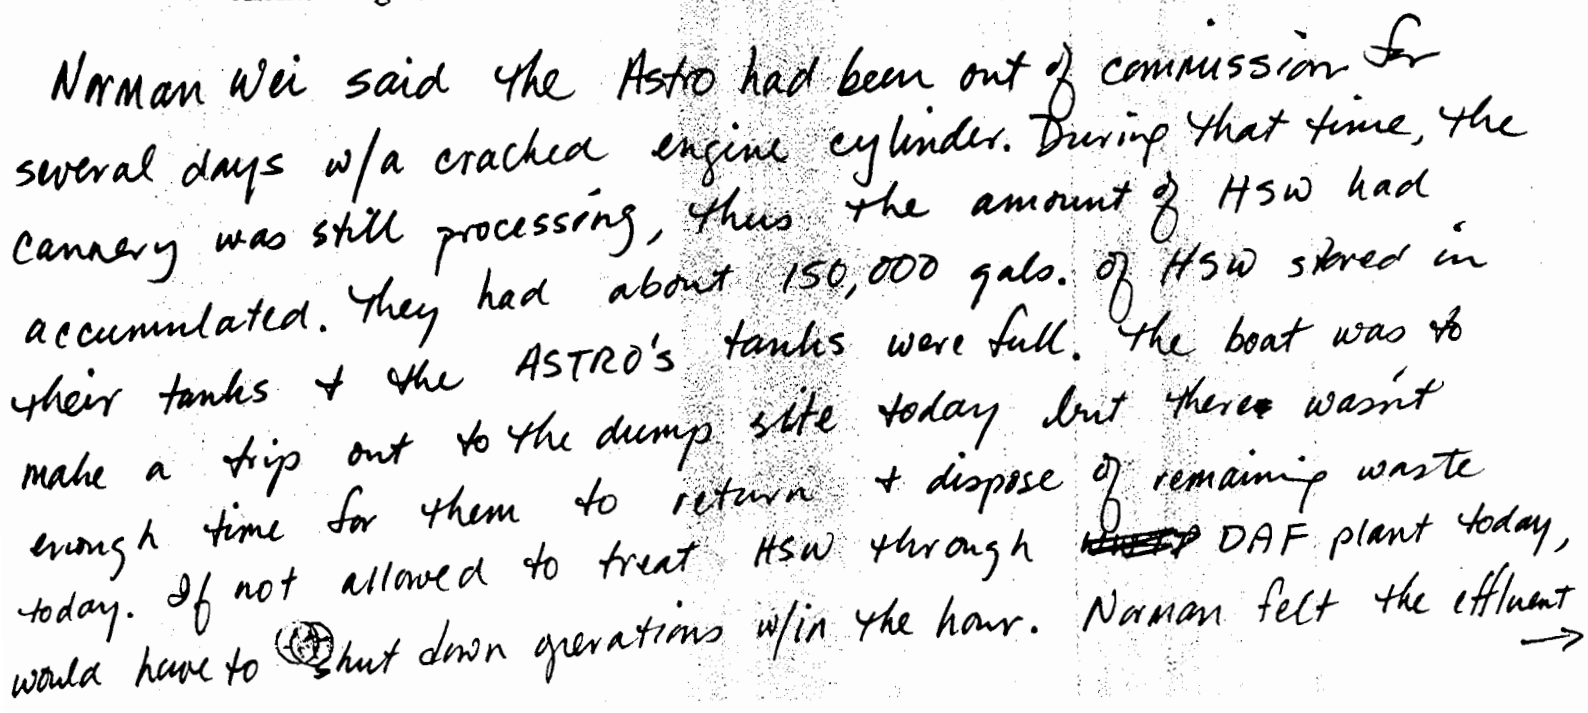 Norman Wei said the Astro had been out of commission for
several days w/a cracked engine cylinder. During that time, the
cannery was still processing, thus the amount of HSW had
accumulated. They had about 150,000 gals. of HSW stored in
their tanks + the ASTRO's tanks were full. The boat was to
make a trip out to the dump site today but there wasn't
enough time for them to return + dispose of remaining waste
today. If not allowed to treat HSW through DAF plant today,
would have to shut down operations w/in the hour. Norman felt the effluent
→